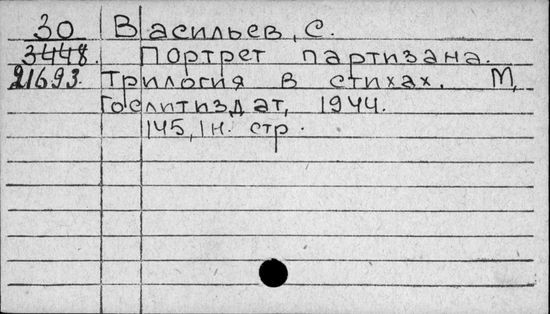 30 Васильев, С.
3448. Портрет партизана.
21693. Трилогия в стихах. М,
Гослитиздат, 1944.
145, 1 н. стр.